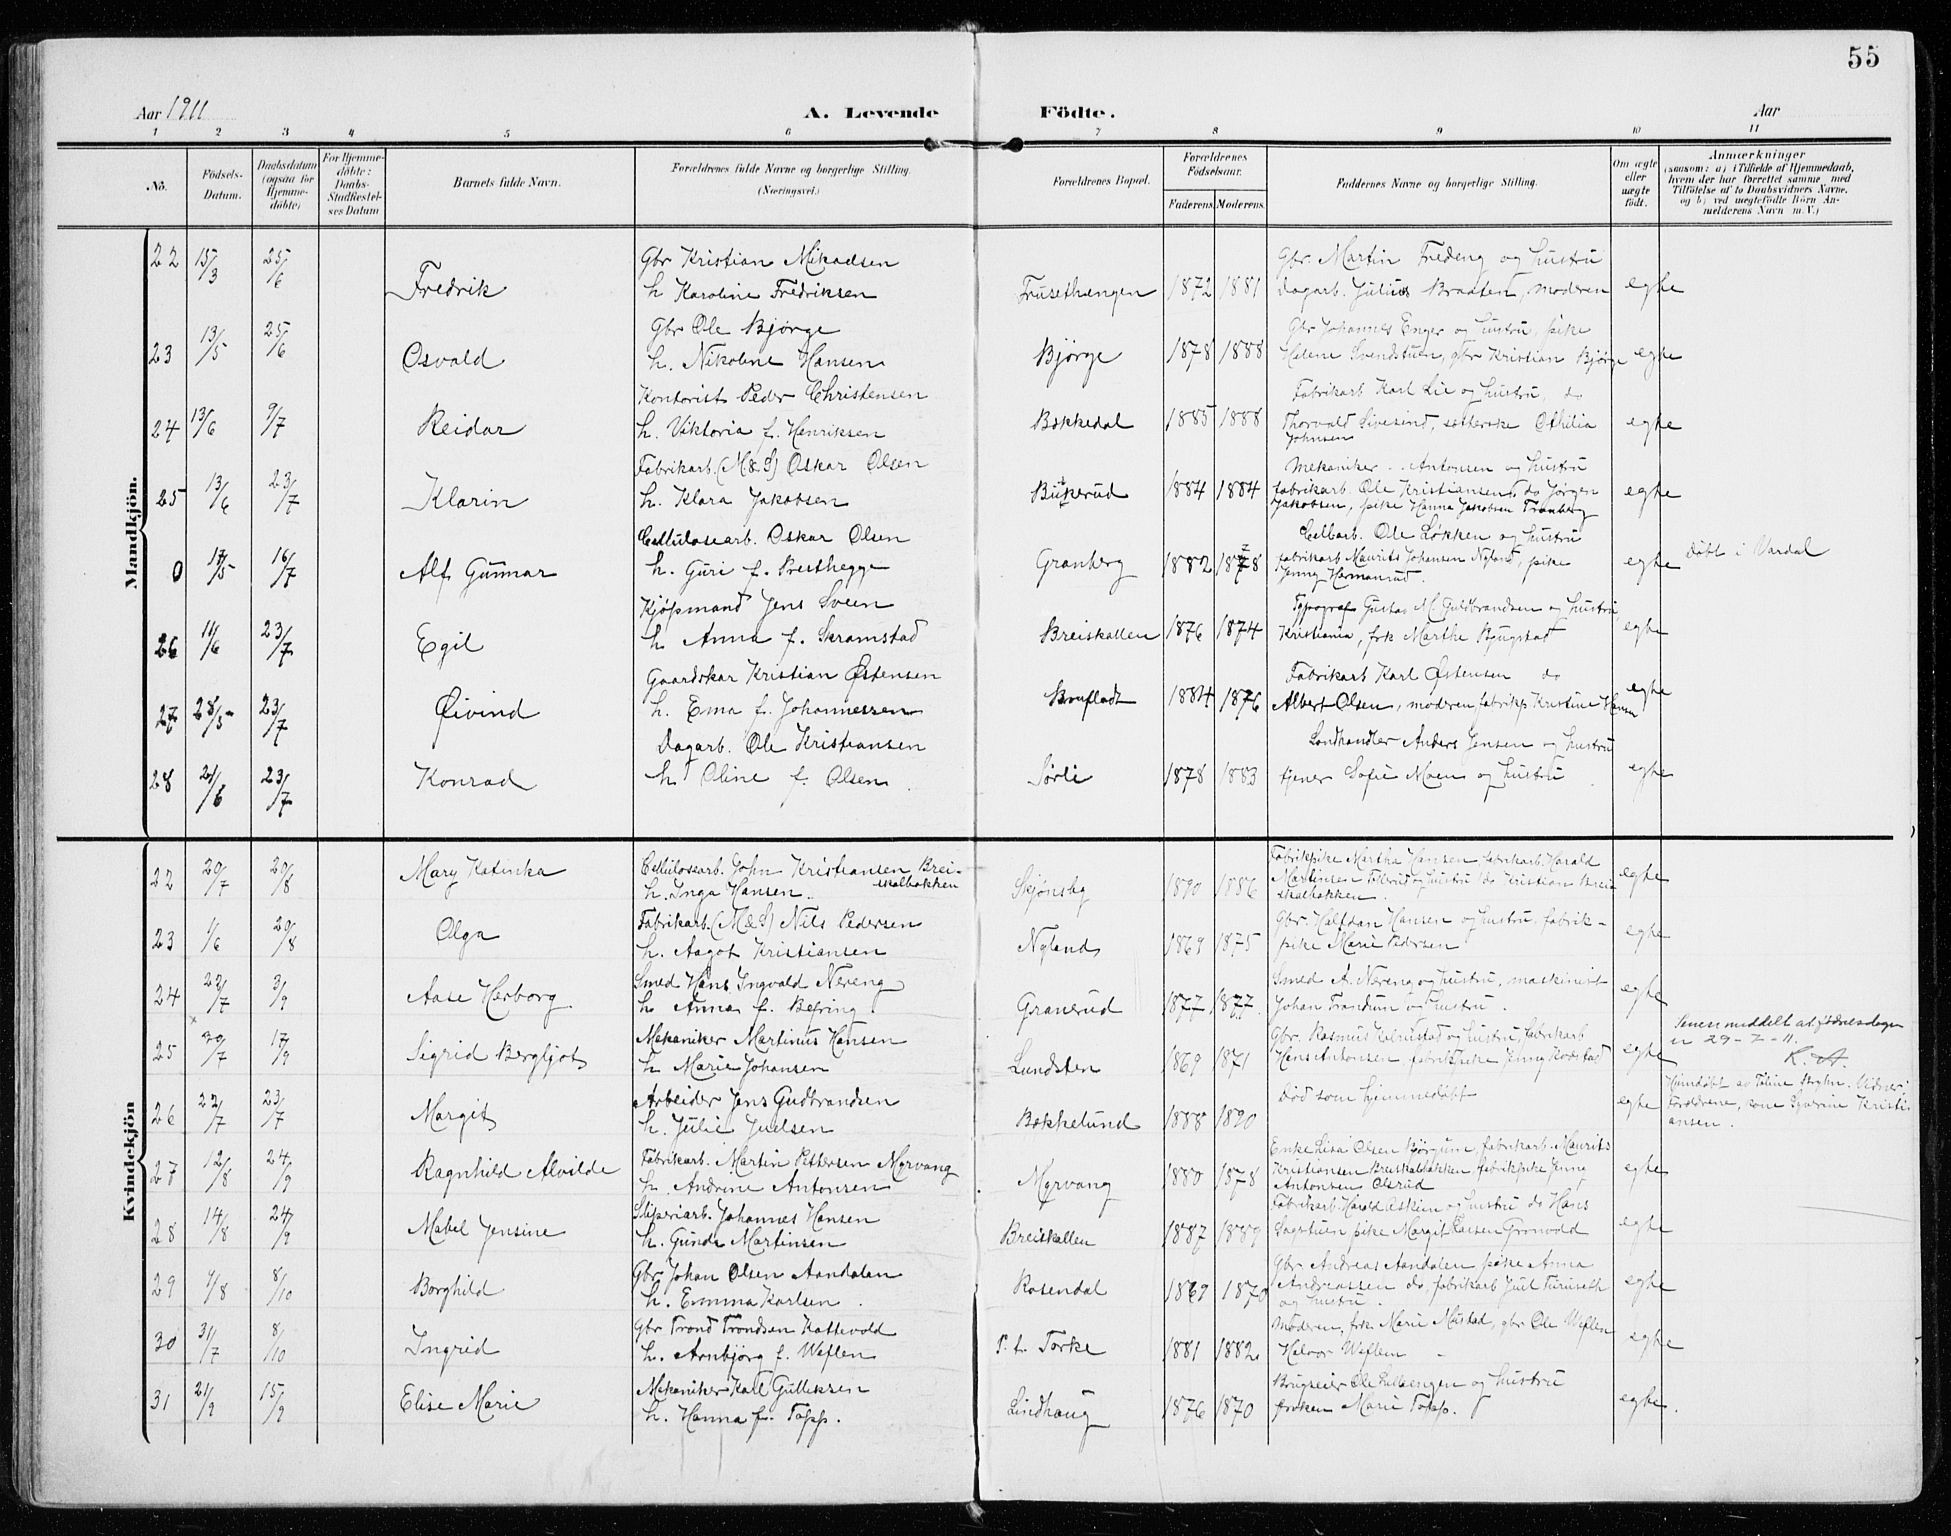 55
Aar 1911
A. Levende Födte.
Aar
1 2 3 4 5 6 7 8 9 10 11
No.
Födsels-Datum.
Daabsdatum (ogsaa for Hjemme-döbte)
For Hjemme-döbte: Daabs-Stadfæstel-ses Datum
Barnets fulde Navn.
Forældrenes fulde Navne og borgerlige Stilling. (Næringsvei.)
Forældrenes Bopæl.
Forældrenes Födselsaar.
Faderens. Moderens.
Faddernes Navne og borgerlige Stilling.
Om ægte eller uægte födt.
Anmærkninger
(saasom: a) i Tilfælde af Hjemmedaab, hvem der har forrettet samme, med Tilföielse af to Daabsvidners Navne, og b) ved uægtefödte Börn An-melderens Navn m. V.)
Mandkjön.
22 15/3 25/6 Fredrik
Gbr Kristian Mikadsen
h. Karoline Fredriksen
Frusethængen 1872 1881
Gbr. Martin Fredeng og hustru
Dagarb. Julius Braaten, moderen
egte
23 13/5 25/6 Osvald
Gbr Ole Bjørge
h. Nikoline Hansen
Bjørge 1878 1888
Gbr Johannes Enger og hustru, pike
Helene Svendstuen, gbr Kristian Bjørge
egte
24 13/6 9/7 Reidar
Kontorist Peder Christensen
h. Viktoria f. Henriksen
Bakkedal 1885 1888
Fabrikarb Karl Lie og hustru, do
Thorvald Sivesind, Othilia
Johnsen
egte
25 13/6 23/7 Klarin
Fabrikarb. (M&S) Oskar Olsen
h. Klara Jakobsen
Bukerud 1884 1884
Mekaniker Antonsen og hustru
fabrikarb Ole Kristiansen, do Jørgen
Jakobsen, pike Hanna Jakobsen Tranberg
egte
0 17/5 16/7 Alf Gunnar
Cellulosearb. Oskar Olsen
h. Guri f. Presthegge
Granberg 1882 1878
Cellarb. Ole Løkken og hustru
fabrikarb Maurits Johansen Nyland, pike
Jenny Hermanrud.
egte
Døbt i Vardal
26 11/6 23/7 Egil
Kjøpmand Jens Sveen
h. Anna f. Skramstad
Breiskallen 1876 1874
Typograf Gustav M. Guldbrandsen og hustru,
Kristiania, frk Marthe Bjugstad
egte
27 28/5 23/7 Øivind
Gaardskar Kristian Østensen
h. Ema f. Johannessen
Brufladt 1884 1876
Fabrikarb Karl Østensen do
Albert Olsen, moderen fabrikp Kristine Hansen
egte
28 21/6 23/7 Konrad
Dagarb. Ole Kristiansen
h. Oline f. Olsen
Sørli 1878 1883
Landhandler Anders Jensen og hustru
tjener Sofie Moen og hustru
egte
Kvindekjön
22 20/7 20/8 Mary Katinka
Cellulosearb. John Kristiansen Brei-
skalbakken
h. Inga Hansen
Skjønsby 1890 1886
Fabrikpike Martha Hansen, fabrikarb. Harald
Martinsen og hustru, do Kristian Brei-
skalbakken.
egte
23 1/6 20/8 Olga
Fabrikarb. (M&S) Nils Pedersen
h. Aagot Kristiansen
Nyland 1869 1875
Gbr. Halfdan Hansen og hustru, fabrik-
pike Marie Pedersen
egte
24 22/7 3/9 Aase Herborg
Smed Hans Ingvald Nereng
h. Anna f. Befring
Granerud 1877 1877
Smed A. Nereng og hustru, maskinist
Johan Trandum og hustru.
egte
25 20/7 17/9 Sigrid Bergljot
Mekaniker Martinus Hansen
h. Marie Johansen
Lundsten 1869 1871
Gbr. Rasmus og hustru, fabrikarb
Hans Antonsen, fabrikpike Jenny
egte
Senere meddelt at fødselsdagen
er 29-7-11.
K. A.
26 22/7 23/7 Margit
Arbeider Jens Gudbrandsen
h. Julie Juelsen
Bakkelund 1888 1890
Død som hjemmedøbt
egte
Hjemdøbt av Vidner:
Forældrene, Kristi-
ansen.
27 12/8 24/9 Ragnhild Alvilde
Fabrikarb. Martin Pettersen Myrvang
h. Andrine Antonsen
Myrvang 1880 1878
Enke Lisa Olsen, fabrikarb. Maurits
Kristiansen Breiskalbakken, fabrikpike Jenny
Antonsen Olsrud
egte
28 14/8 24/9 Mabel Jensine
Sliperiarb. Johannes Hansen
h. Gunda Martinsen
Breiskallen 1887 1889
Fabrikarb. Harald Askim og hustru do Hans
Sagstuen pike Margit Larsen Grønvold
egte
29 1/8 8/10 Borghild
Gbr Johan Olsen Aandalen
h. Emma Karlsen.
Rosendal 1869 1870
Gbr. Andreas Aandalen pike Anna
Andreassen do, fabrikarb Juul Furuseth
og hustru.
egte
30 31/7 8/10 Ingrid
Gbr Trond Trondsen Kattevold
h. Arnbjørg f. Weflen
P. t. Torke 1881 1882
Moderen, frk Marie Mustad, gbr Ole Weflen
Halvor Weflen
egte
31 21/9 15/9 Elise Marie
Mekaniker Karl Gulliksen
h. Hanna f. Topp.
Lindhaug 1876 1870
Brugseier Ole Lillengen og hustru
frøken Marie Topp.
egte.